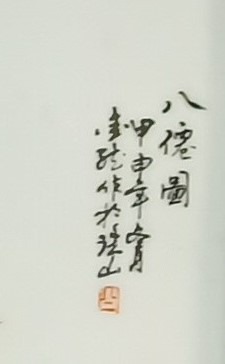 八僊圖
甲申年夏月
作於珠山